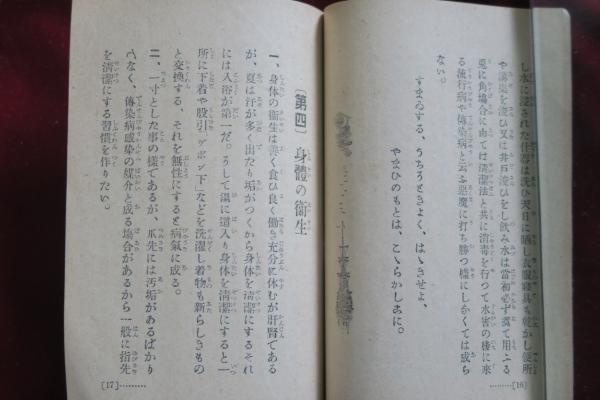 し水に浸された什器は洗ひ天日に晒し衣服寢具も乾かし便所
や溝渠を浚ひ又は井戸浚ひをし飲み水は當初必ず煮て用ふる
兎に角場合に由ては清潔法と共に消毒を行つて水害の後に來
る流行病や傳染病と云ふ惡魔に打ち勝つ樣にしなくては成ら
ない。
すまゐする、うちろときよく、はゝきせよ、
やまひのもとは、こゝらかしあに。
[16]
〔第四〕身體の衞生
一、身体の衞生は善く食ひ良く働き充分に休むが肝腎である
が、夏は汗が多く出たり垢がつくから身体を清潔にするそれ
には入浴が第一だ。そして湯に這入り身体を清潔にすると一
所に下着や股引「ヅボン下」などを洗濯し着物も新らしきもの
と交換する、それを無性にすると病氣に成る。
二、一寸とした事の樣であるが、爪先には汚垢があるばかり
でなく、傳染病感染の媒介と成る場合があるから一般に指先
を清潔にする習慣を作りたい。
[17]